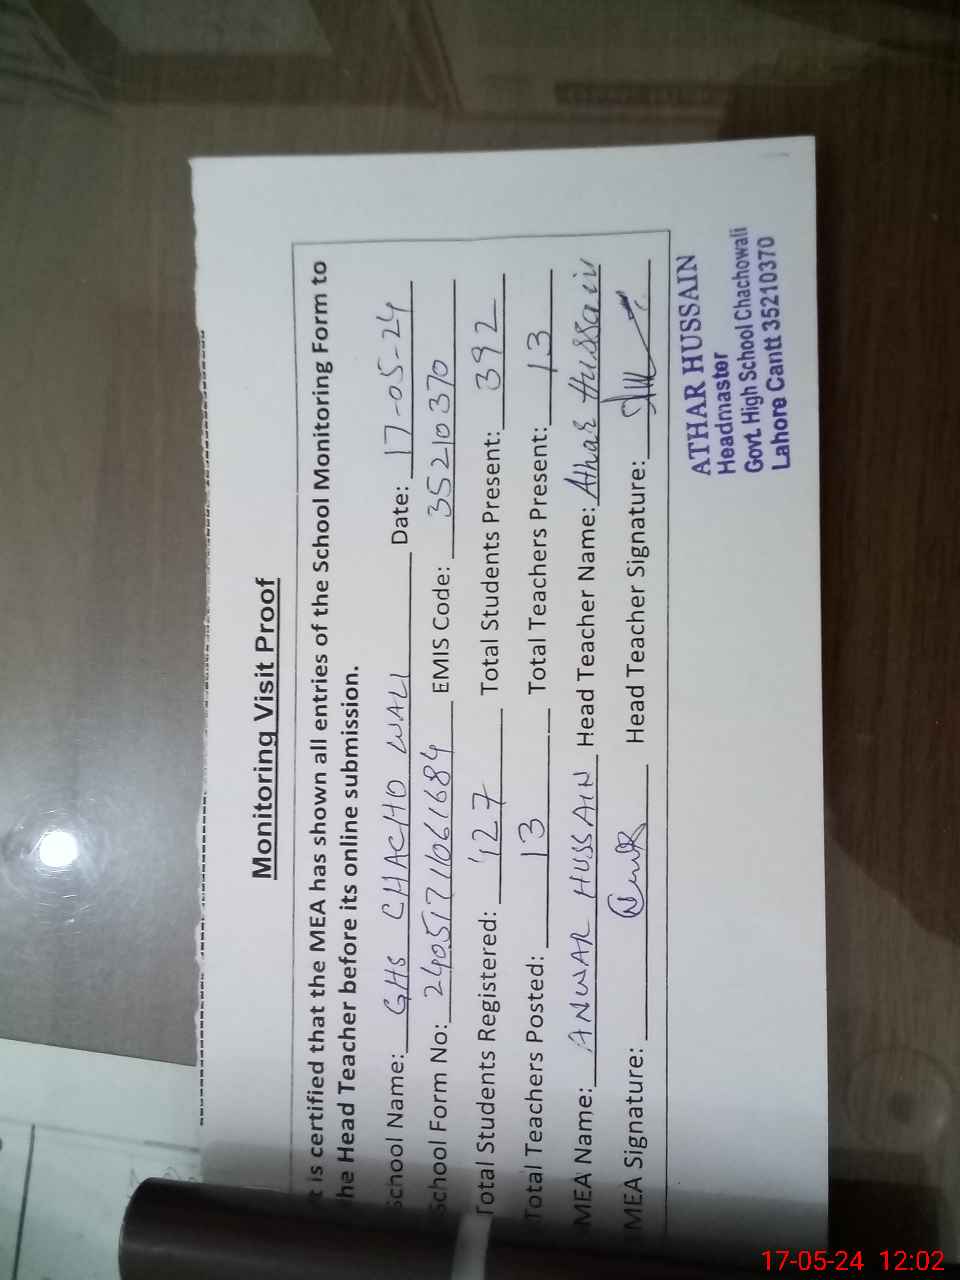 Monitoring Visit Proof
t is certified that the MEA has shown all entries of the School Monitoring Form to
he Head Teacher before its online submission.
School Name: GHS CHACHO WALI Date: 17-05-24
School Form No: 2405171061684 EMIS Code: 35210370
Total Students Registered: 427 Total Students Present: 392
Total Teachers Posted: 13 Total Teachers Present: 13
MEA Name: ANWAR HUSSAIN Head Teacher Name: Athar Hussain
MEA Signature: Head Teacher Signature:
ATHAR HUSSAIN
Headmaster
Govt. High School Chachowali
Lahore Cantt 35210370
17-05-24 12:02